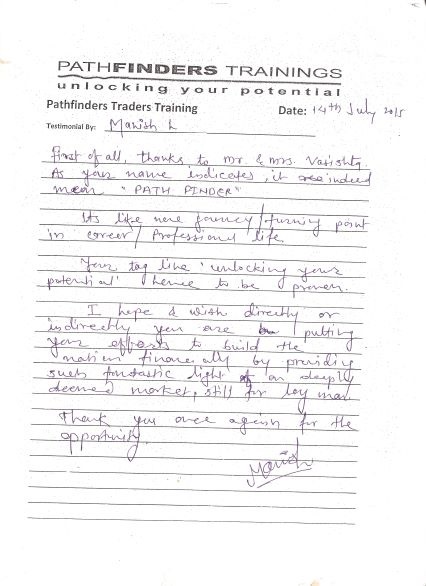 PATHFINDERS TRAININGS
unlocking your potential
Pathfinders Traders Training
Date: 14th July 2015
Testimonial By: Manish L
First of all, thanks to Mr. & Mrs. Vasishta.
As your name indicates, it indeed
mean "PATH FINDER"
Its like new journey/turning point
in career/Professional life
Your tag line 'unlocking your
potential' hence to be proven.
I hope & wish directly or
indirectly you are putting
your efforts to build the
nation financially by providing
such fantastic light on deeply
deemed market, still for lay man.
Thank you once again for the
opportunity.
Manish